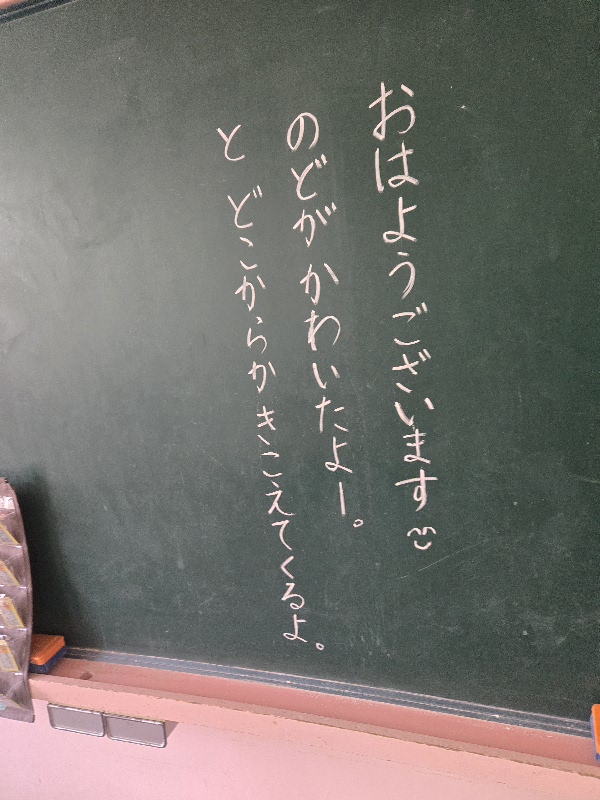 おはようございます
のどが かわいたよー。
と どこからか きこえてくるよ。